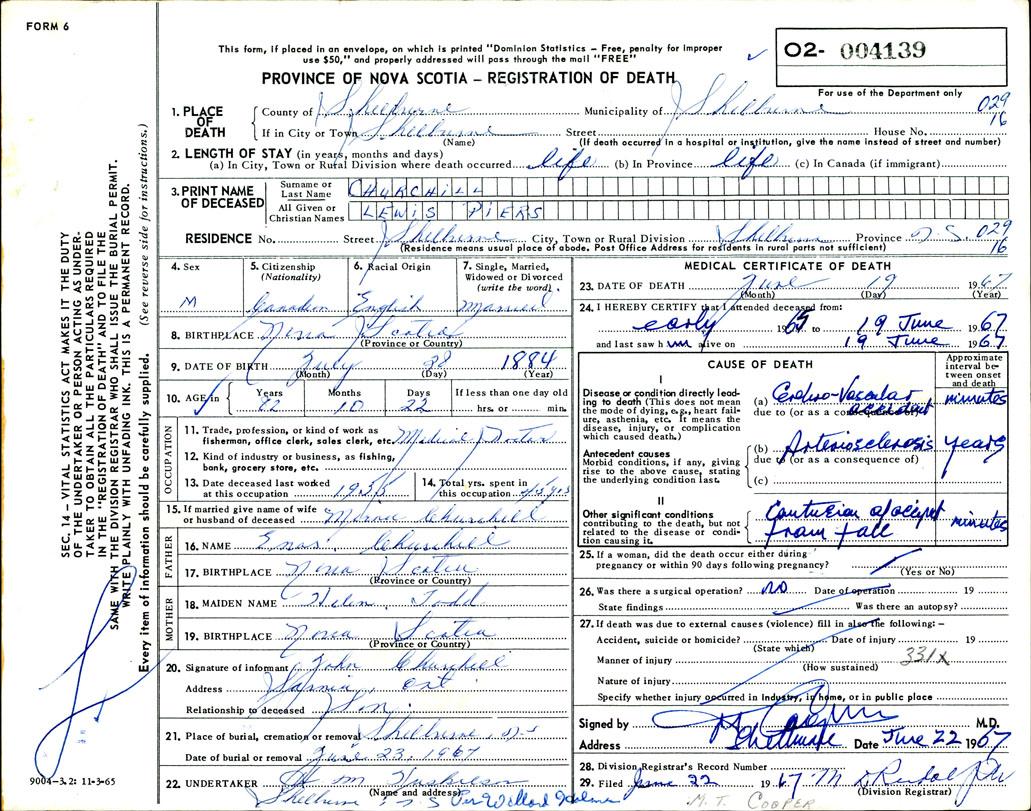 FORM 6
This form, if placed in an envelope, on which is printed "Dominion Statistics – Free, penalty for improper
use $50," and properly addressed will pass through the mail "FREE"
O2- 004139
For use of the Department only
PROVINCE OF NOVA SCOTIA – REGISTRATION OF DEATH
029
16
1. PLACE OF DEATH
County of Shelburne Municipality of Shelburne
If in City or Town Shelburne Street House No.
(Name) (If death occurred in a hospital or institution, give the name instead of street and number)
2. LENGTH OF STAY (in years, months and days)
(a) In City, Town or Rural Division where death occurred life (b) In Province life (c) In Canada (if immigrant)
3. PRINT NAME OF DECEASED
Surname or Last Name CHURCHILL
All Given or Christian Names LEWIS PIERS
RESIDENCE No. Street Shelburne City, Town or Rural Division Shelburne Province N.S. 029
16
(Residence means usual place of abode. Post Office Address for residents in rural parts not sufficient)
4. Sex M
5. Citizenship (Nationality) Canadian
6. Racial Origin English
7. Single, Married, Widowed or Divorced (write the word) Married
8. BIRTHPLACE Nova Scotia
(Province or Country)
9. DATE OF BIRTH July 1884
(Month) (Day) (Year)
10. AGE in Years 82 Months 10 Days 22 If less than one day old hrs. or min.
OCCUPATION
11. Trade, profession, or kind of work as fisherman, office clerk, sales clerk, etc. Medical Doctor
12. Kind of industry or business, as fishing, bank, grocery store, etc.
13. Date deceased last worked at this occupation 1955
14. Total yrs. spent in this occupation 45 yrs
15. If married give name of wife or husband of deceased Churchill
FATHER
16. NAME Churchill
17. BIRTHPLACE Nova Scotia
(Province or Country)
MOTHER
18. MAIDEN NAME Helen Todd
19. BIRTHPLACE Nova Scotia
(Province or Country)
20. Signature of informant John Churchill
Address Sarnia, Ont
Relationship to deceased Son
21. Place of burial, cremation or removal Shelburne, N.S
Date of burial or removal June 23, 1967
22. UNDERTAKER
(Name and address)
Shelburne N S Per Willard
MEDICAL CERTIFICATE OF DEATH
23. DATE OF DEATH June 19 1967
(Month) (Day) (Year)
24. I HEREBY CERTIFY that I attended deceased from:
early to 19 June 1967
and last saw him alive on 19 June 1967
CAUSE OF DEATH
Approximate interval between onset and death
I
Disease or condition directly leading to death (This does not mean the mode of dying, e.g., heart failure, asthenia, etc. It means the disease, injury, or complication which caused death.)
(a) Cerebro-Vascular accident minutes
due to (or as a consequence of)
Antecedent causes
Morbid conditions, if any, giving rise to the above cause, stating the underlying condition last.
(b) Arteriosclerosis years
due to (or as a consequence of)
(c)
II
Other significant conditions contributing to the death, but not related to the disease or condition causing it.
Contusion of occiput minutes
from fall
25. If a woman, did the death occur either during pregnancy or within 90 days following pregnancy?
(Yes or No)
26. Was there a surgical operation? no Date of operation 19
State findings Was there an autopsy?
27. If death was due to external causes (violence) fill in also the following: –
Accident, suicide or homicide? Date of injury 19
(State which)
Manner of injury 331x
(How sustained)
Nature of injury
Specify whether injury occurred in Industry, in home, or in public place
Signed by M.D.
Address Shelburne Date June 22 1967
28. Division Registrar's Record Number
29. Filed June 22 1967
(Division Registrar)
M. T. COOPER
9004-3.2: 11-3-65
SEC. 14 – VITAL STATISTICS ACT MAKES IT THE DUTY
OF THE UNDERTAKER OR PERSON ACTING AS UNDER-
TAKER TO OBTAIN ALL THE PARTICULARS REQUIRED
IN THE "REGISTRATION OF DEATH" AND TO FILE THE
SAME WITH THE DIVISION REGISTRAR WHO SHALL ISSUE THE BURIAL PERMIT.
WRITE PLAINLY WITH UNFADING INK. THIS IS A PERMANENT RECORD.
Every item of information should be carefully supplied. (See reverse side for instructions.)